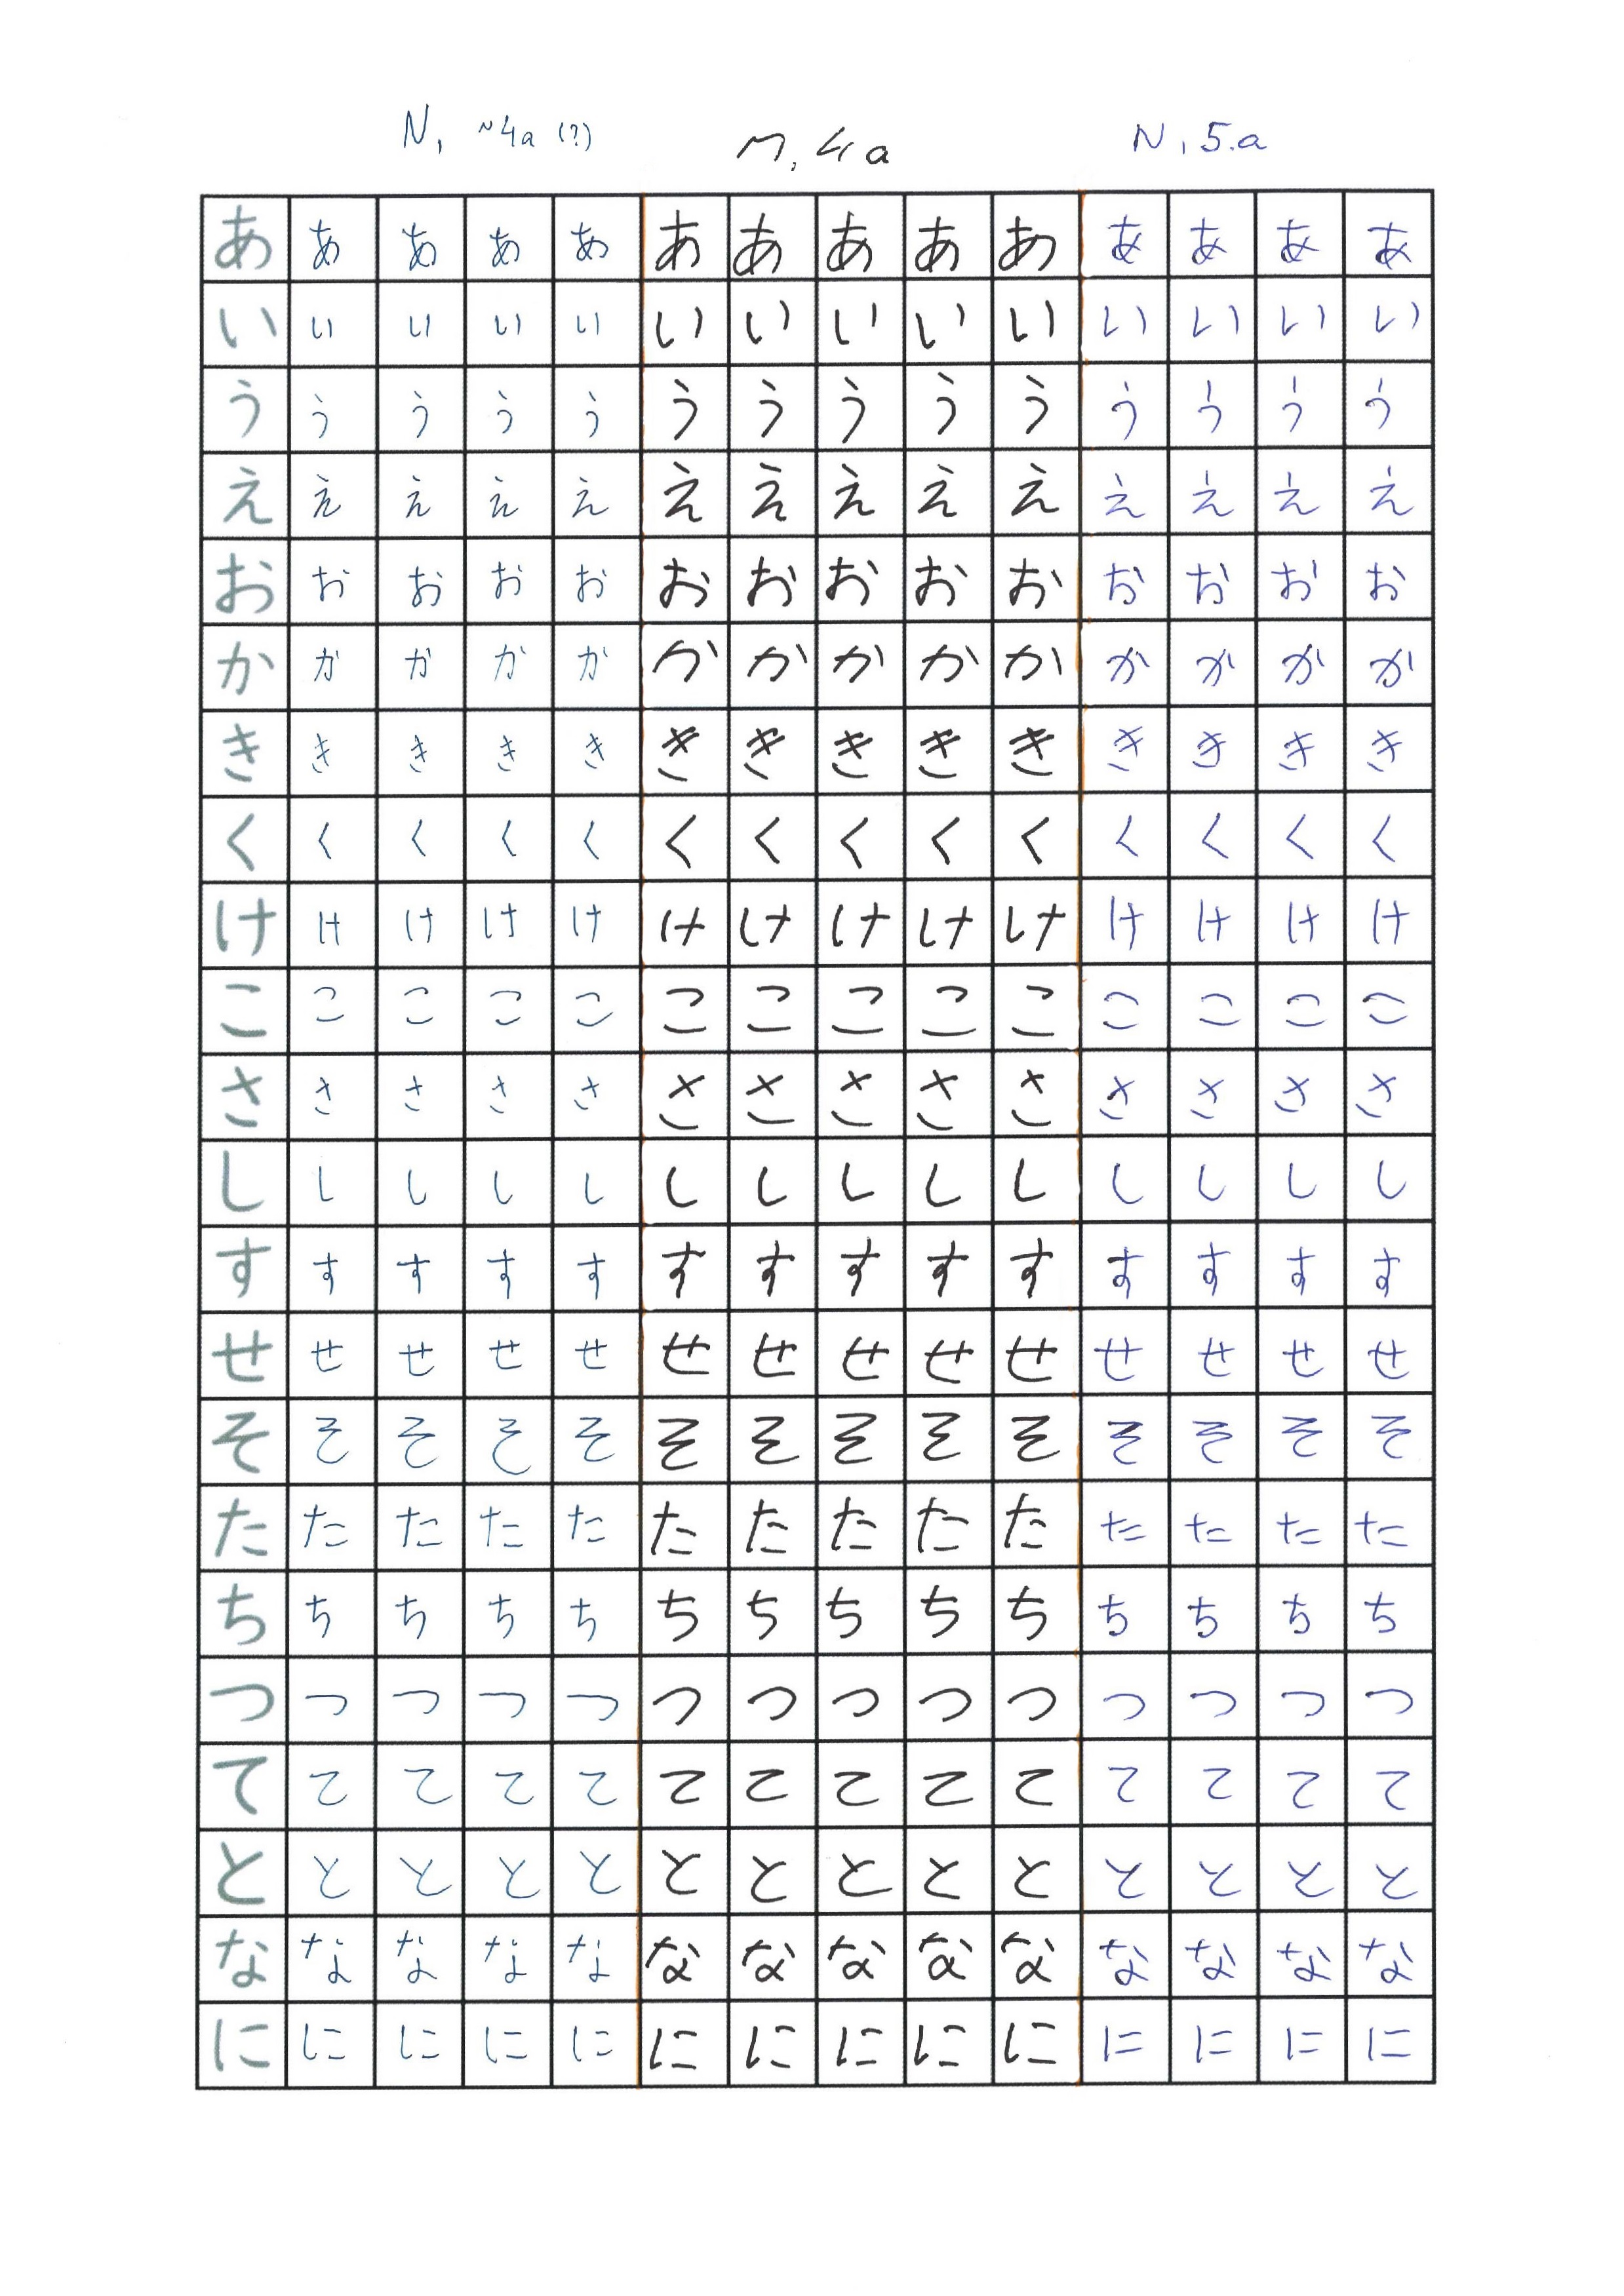 N, ~4a (?) M, 4a N, 5.a
あ あ あ あ あ あ あ あ あ あ あ あ あ あ
い い い い い い い い い い い い い い
う う う う う う う う う う う う う う
え え え え え え え え え え え え え え
お お お お お お お お お お お お お お
か か か か か か か か か か か か か か
き き き き き き き き き き き き き き
く く く く く く く く く く く く く く
け け け け け け け け け け け け け け
こ こ こ こ こ こ こ こ こ こ こ こ こ こ
さ さ さ さ さ さ さ さ さ さ さ さ さ さ
し し し し し し し し し し し し し し
す す す す す す す す す す す す す す
せ せ せ せ せ せ せ せ せ せ せ せ せ せ
そ そ そ そ そ そ そ そ そ そ そ そ そ そ
た た た た た た た た た た た た た た
ち ち ち ち ち ち ち ち ち ち ち ち ち ち
つ つ つ つ つ つ つ つ つ つ つ つ つ つ
て て て て て て て て て て て て て て
と と と と と と と と と と と と と と
な な な な な な な な な な な な な な
に に に に に に に に に に に に に に